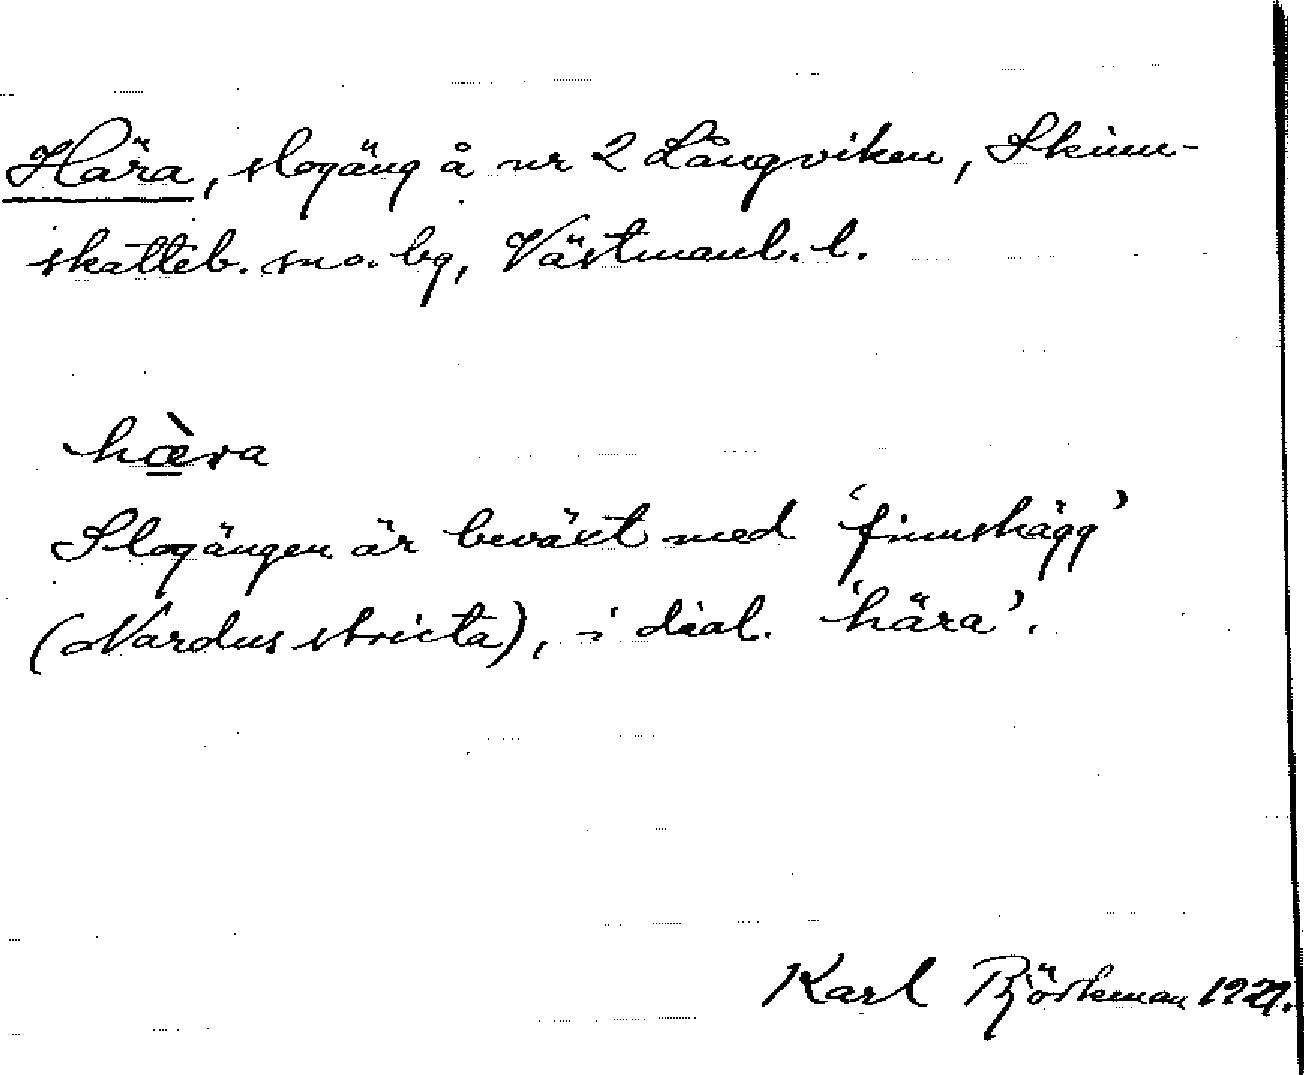 Hära, slogäng å nr 2 Långviken, Skinn-
skatteb. sn o. bg, Västmanl. l.
hæ̀ra
Slogängen är beväxt med 'finnskägg'
(Nardus stricta), i dial. 'hära'.
Karl Björkman 1927.